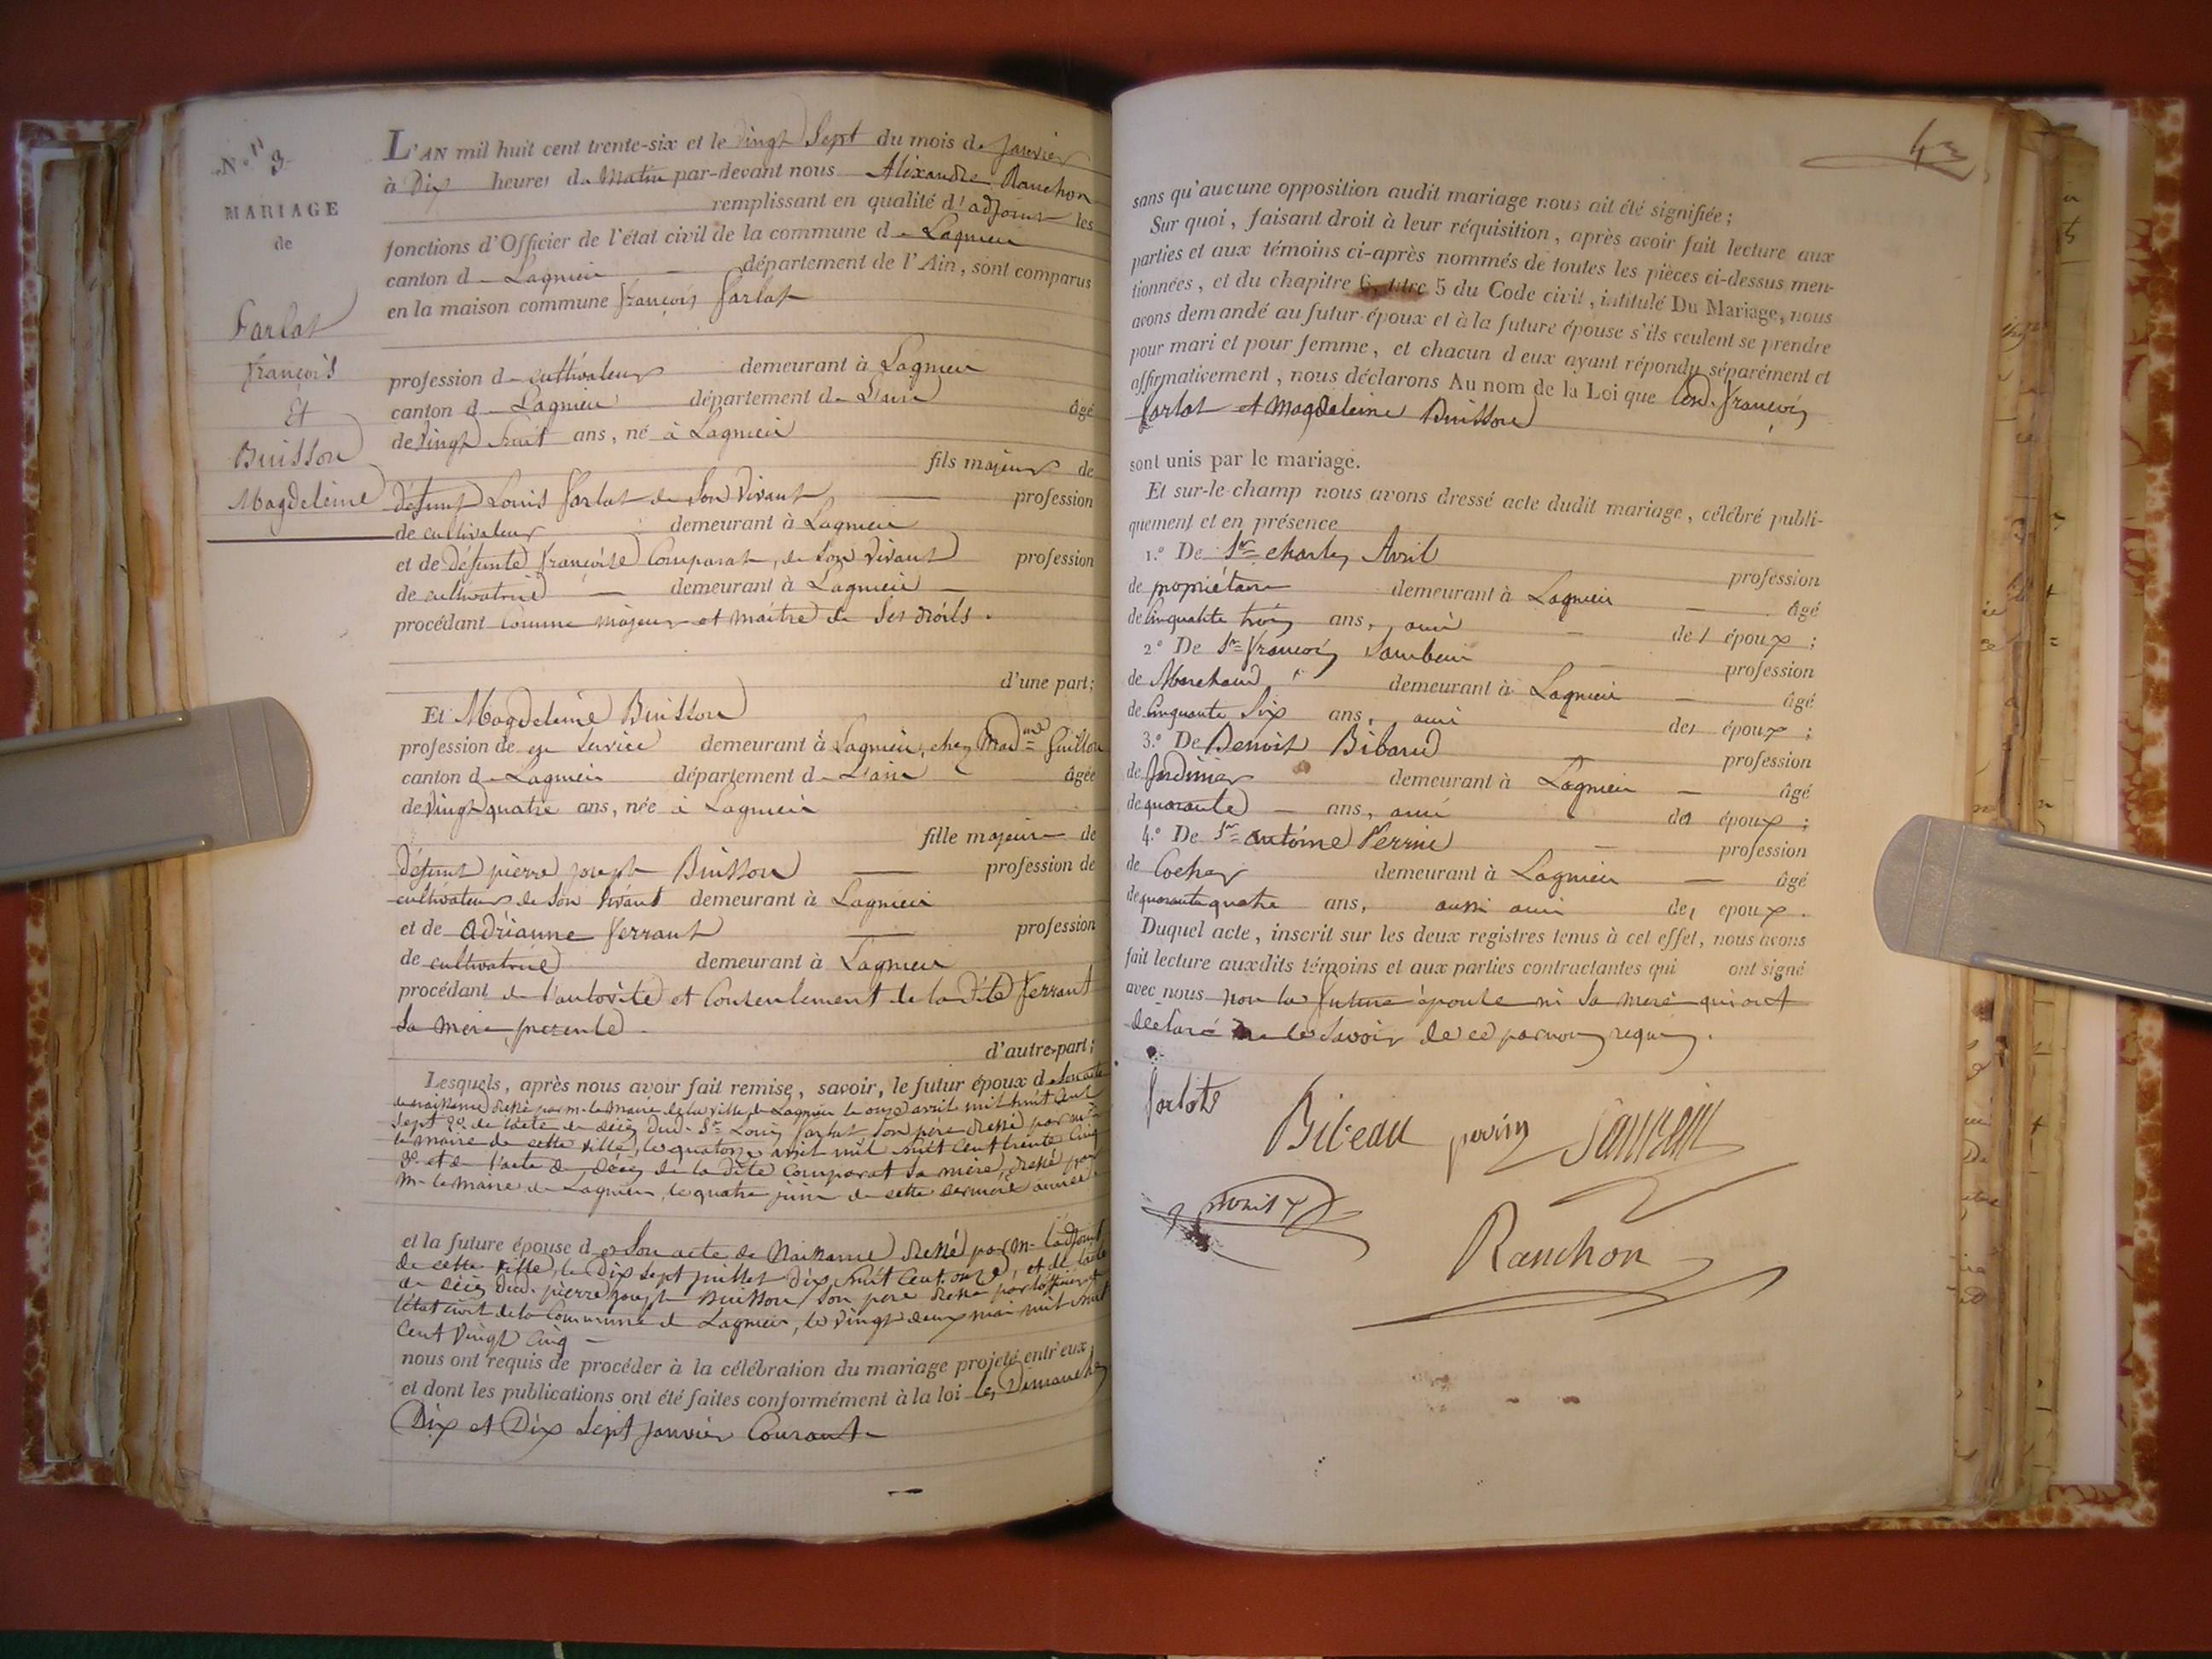 N.º 3.
MARIAGE
de
Farlat
françois
Et
Buisson
Magdeleine
L'AN mil huit cent trente-six et le vingt Sept du mois de janvier
à Dix heures du Matin par-devant nous Aléxandre Ranchon
remplissant en qualité d'adjoint les
fonctions d'Officier de l'état civil de la commune de Lagnieu
canton de Lagnieu département de l'Ain, sont comparus
en la maison commune françois farlat
profession de cultivateur demeurant à Lagnieu
canton de Lagnieu département de L'ain âgé
de vingt huit ans, né à Lagnieu
fils majeur de
défunt Louis farlat de Son Vivant profession
de cultivateur demeurant à Lagnieu
et de défunte françoise Comparat, de Son Vivant profession
de cultivatrice demeurant à Lagnieu
procédant comme majeur et maitre de Ses droits.
d'une part;
Et Magdeleine Buisson
profession de en Service demeurant à Lagnieu, chez Mad.me Guillon
canton de Lagnieu département de L'ain âgée
de vingt quatre ans, née à Lagnieu
fille majeure de
défunt pierre joseph Buisson profession de
cultivateur de Son Vivant demeurant à Lagnieu
et de adrianne ferrant profession
de cultivatrice demeurant à Lagnieu
procédant de l'autorité et Consentement de la dite ferrant
Sa mere présente.
d'autre part;
Lesquels, après nous avoir fait remise, savoir, le futur époux de Son acte
de naissance dressé par m. le Maire de la ville de Lagnieu le onze avril mil huit Cent
Sept 2.º de l'acte de décès dud. Sr. Louis farlat Son père dressé par m.r
le maire de cette ville, le quatorze avril mil huit Cent trente Cinq
3.º et de l'acte de décès de la dite Comparat Sa mère, dressé par
M. le maire de Lagnieu, le quatre juin de cette dernière année.
et la future épouse de Son acte de Naissance dressé par m. l'adjoint
de cette ville, le dix Sept juillet dix huit Cent onze, et de l'acte
de décès dud. pierre joseph Buisson Son pere dressé par l'officier de
l'état civil de la Commune de Lagnieu, le vingt deux mai mil huit
Cent vingt Cinq
nous ont requis de procéder à la célébration du mariage projeté entr'eux,
et dont les publications ont été faites conformément à la loi les Dimanches
Dix et Dix Sept janvier Courant
43
sans qu'aucune opposition audit mariage nous ait été signifiée;
Sur quoi, faisant droit à leur réquisition, après avoir fait lecture aux
parties et aux témoins ci-après nommés de toutes les pièces ci-dessus men-
tionnées, et du chapitre 6, titre 5 du Code civil, intitulé Du Mariage, nous
avons demandé au futur époux et à la future épouse s'ils veulent se prendre
pour mari et pour femme, et chacun d'eux ayant répondu séparément et
affirmativement, nous déclarons Au nom de la Loi que Led. françois
farlat et Magdeleine Buisson
sont unis par le mariage.
Et sur-le-champ nous avons dressé acte dudit mariage, célébré publi-
quement et en présence
1.º De Sr. charles Avril profession
de propriétaire demeurant à Lagnieu âgé
de Cinquante trois ans, ami des époux;
2.º De Sr. françois Sambein profession
de Marchand demeurant à Lagnieu âgé
de Cinquante Six ans, ami des époux;
3.º De Benoit Bibaud profession
de Jardinier demeurant à Lagnieu âgé
de quarante ans, ami des époux;
4.º De Sr. antoine Perrin profession
de Cocher demeurant à Lagnieu âgé
de quarante quatre ans, aussi ami des époux.
Duquel acte, inscrit sur les deux registres tenus à cet effet, nous avons
fait lecture auxdits témoins et aux parties contractantes qui ont signé
avec nous non la future épouse ni Sa mere qui ont
déclaré ne le Savoir de ce par nous requis.
farlat
Bibeau perrin
Ranchon